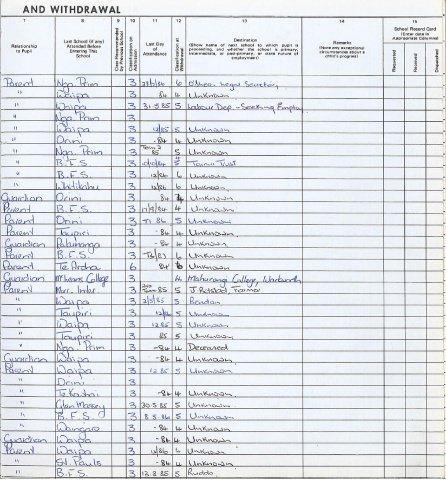 AND WITHDRAWAL
7 8 9 10 11 12 13 14 15
Relationship to Pupil
Last School (if any) Attended Before Entering This School
Class Recommended by Previous School
Classification on Admission
Last Day of Attendance
Classification at Withdrawal
Destination (Show name of next school to which pupil is proceeding, and whether the school is primary, intermediate, or post-primary; or state nature of employment)
Remarks (Show any exceptional circumstances about a child's progress)
School Record Card (Enter date in Appropriate Column)
Requested Received Dispatched
Parent Nga. Prim 3 6 Secretary
" Waipa 3 84 4 Unknown
" Waipa 3 31.5.85 5 Labour Dep - Seeking Employ
" Nga. Prim 3
" Waipa 3 12/85 5 Unknown
" Orini 3 -84 4 Unknown
" Nga. Prim 3 Term 3 85 5 Unknown
" B.F.S. 3 10/10/84 5 Tainui Trust
" B.F.S. 3 12/84 6 Unknown
" Waitikahu 3 12/84 6 Unknown
Guardian Orini 3 84 4 Unknown
Parent B.F.S. 3 17/9/84 4 Unknown
Parent Orini 3 T1 86 5 Unknown
Parent Taupiri 3 -84 4 Unknown
Guardian 3 -84 4 Unknown
" B.F.S. 3 6 Unknown
Parent Te Aroha 6 84 6 Unknown
Guardian College 3 4 Mahurangi College, Warkworth
Parent Mur. Inter 3 85 5
" Waipa 3 2/5/85 5
" Taupiri 3 12/84 5 Unknown
" Waipa 3 12.85 5 Unknown
" Taupiri 3 85 5 Unknown
" Nga. Prim 3 -84 4 Deceased
Guardian Waipa 3 -84 4 Unknown
Parent Waipa 3 12.85 5 Unknown
" Orini 3
" Te Kauhi 3 -84 4 Unknown
" Glen Massey 3 30.3.85 5 Unknown
" B.F.S. 3 8.5.86 5 Unknown
" 3 -84 4 Unknown
Guardian Waipa 3 -84 4 Unknown
Parent Waipa 3 11/86 6 Unknown
" St. Pauls 3 -84 4 Unknown
" B.F.S. 3 13.8.85 5